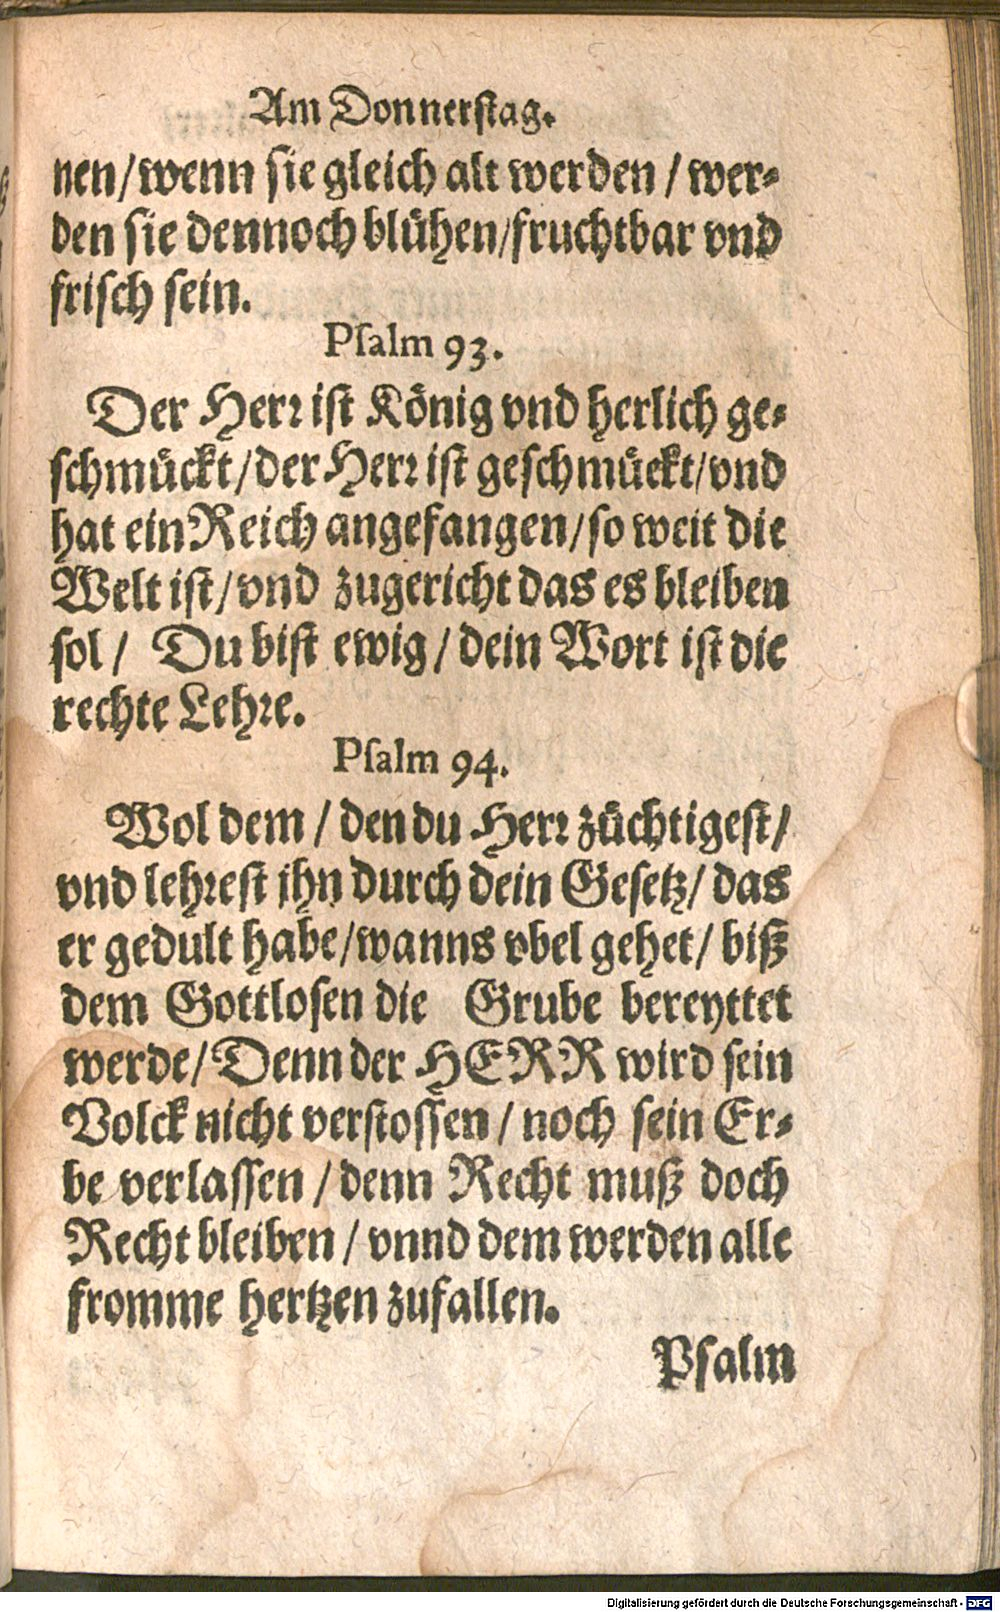 Am Donnerstag.
nen/wenn sie gleich alt werden / wer-
den sie dennoch blühen/fruchtbar vnd
frisch sein.
Psalm 93.
Der Herr ist König vnd herlich ge-
schmückt/der Herr ist geschmückt/vnd
hat ein Reich angefangen/so weit die
Welt ist/vnd zugericht das es bleiben
sol / Du bist ewig / dein Wort ist die
rechte Lehre.
Psalm 94.
Wol dem / den du Herr züchtigest/
vnd lehrest jhn durch dein Gesetz/ das
er gedult habe/wanns vbel gehet/ biß
dem Gottlosen die Grube bereyttet
werde/ Denn der HERR wird sein
Volck nicht verstossen / noch sein Er-
be verlassen / denn Recht muß doch
Recht bleiben / vnnd dem werden alle
fromme hertzen zufallen.
Psalm
Digitalisierung gefördert durch die Deutsche Forschungsgemeinschaft - DFG